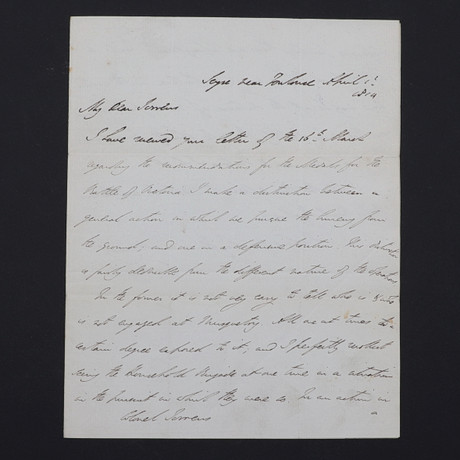 Seysses near Toulouse April 1st
1814
My Dear Torrens
I have received your letter of the 16th March
regarding the recommendations for the Medals for the
Battle of Vitoria. I make a distinction between a
general action in which we pursue the Enemy from
the ground, and one in a defensive position. This distinction
is fairly deducible from the different nature of the operations
In the former it is not very easy to tell who is & who
is not engaged at Musquetry. All are at times to a
certain degree exposed to it, and I perfectly recollect
seeing the Household Brigade at one time in a situation
in the pursuit in which they were so. In an action in
Colonel Torrens a